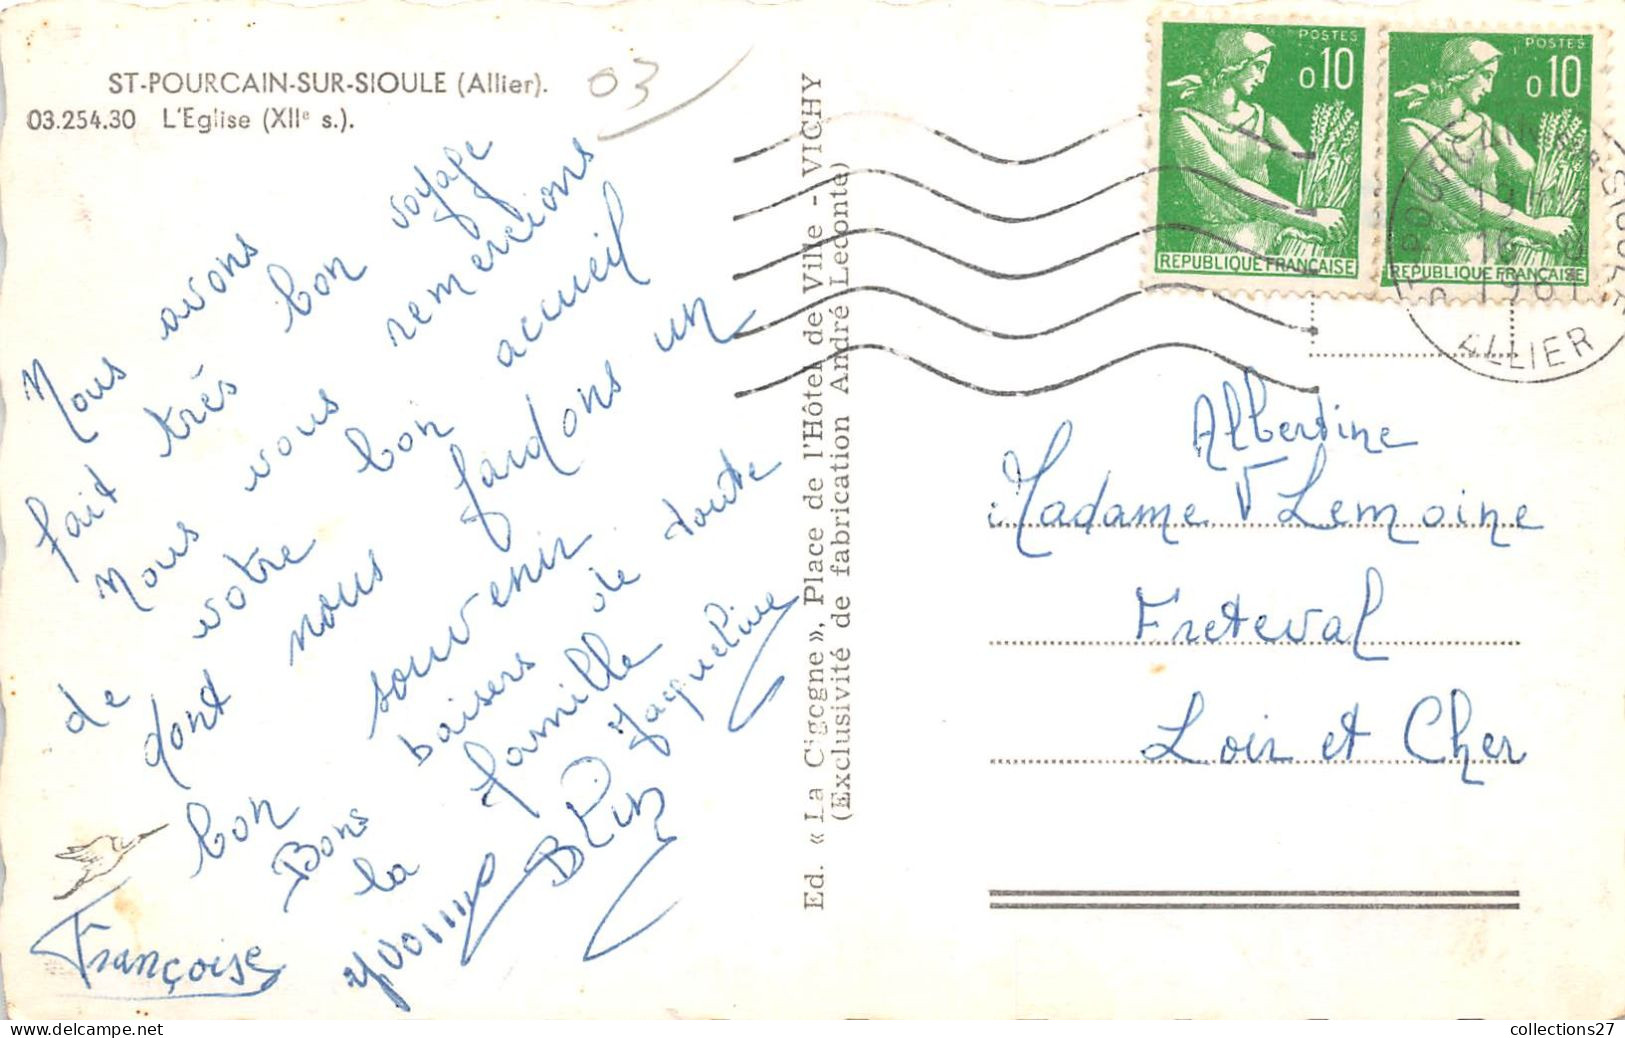 ST-POURCAIN-SUR-SIOULE (Allier).
03.254.30 L'Eglise (XIIe s.).
03
Nous avons
fait très bon voyage
nous vous remercions
de votre bon accueil
dont nous gardons un
bon souvenir.
Bons baisers de toute
la famille
Yvonne Blin Jaqueline
Françoise
Ed. « La Cigogne », Place de l'Hôtel de Ville - VICHY
(Exclusivité de fabrication André Leconte)
POSTES
0,10
REPUBLIQUE FRANÇAISE
POSTES
0,10
REPUBLIQUE FRANÇAISE
ST POURCAIN-SUR-SIOULE
1961
ALLIER
Albertine
Madame V Lemoine
Freteval
Loir et Cher
collections27